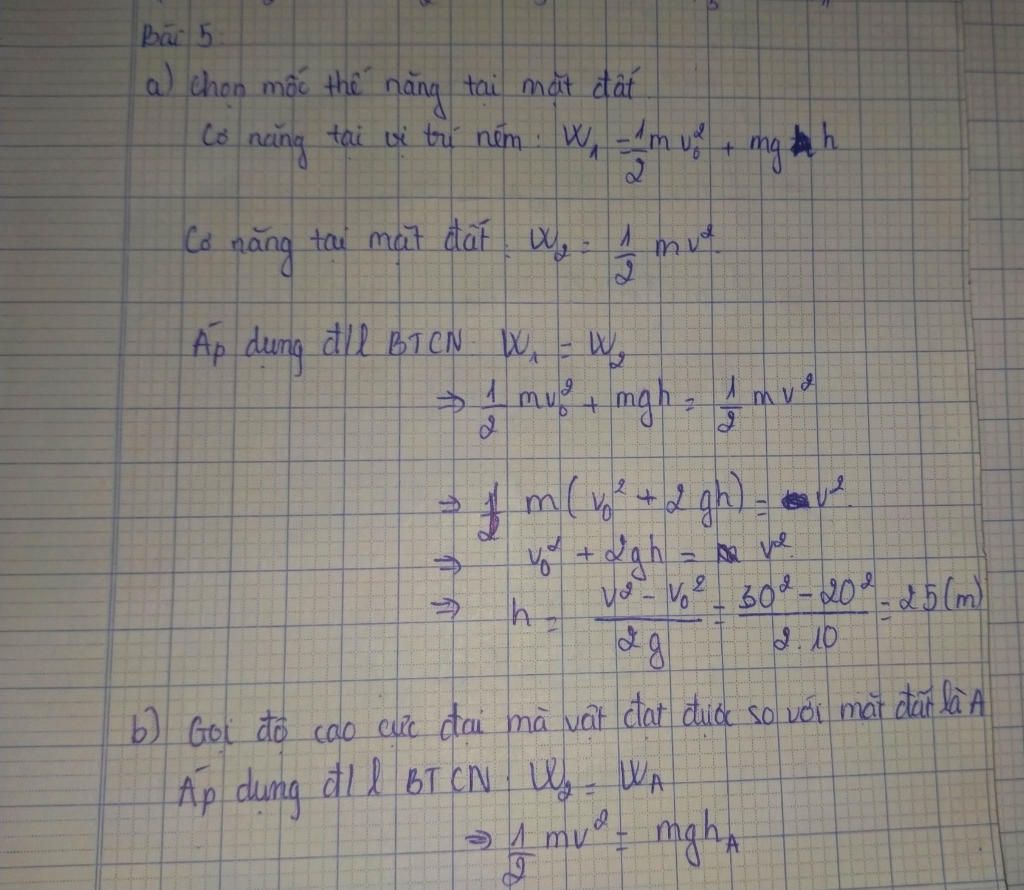 Bài 5
a) Chọn mốc thế năng tại mặt đất.
Cơ năng tại vị trí ném: W₁ = 1/2 m v₀² + mg h
Cơ năng tại mặt đất: W₂ = 1/2 m v².
Áp dụng đ/l BTCN W₁ = W₂
⇒ 1/2 mv₀² + mgh = 1/2 m v²
⇒ 1/2 m(v₀² + 2gh) = v².
⇒ v₀² + 2gh = v².
⇒ h = (v² - v₀²)/(2g) = (30² - 20²)/(2.10) = 25 (m)
b) Gọi độ cao cực đại mà vật đạt được so với mặt đất là A
Áp dụng đ/l BTCN: W₂ = W_A
⇒ 1/2 mv² = mgh_A